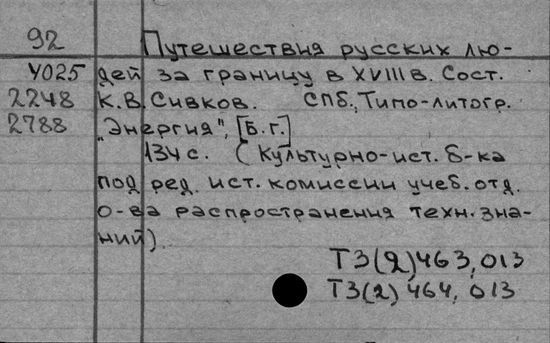 92 Путешествия русских лю-
У025 дей за границу в XVIII в. Сост.
2248 К.В. Сивков. СПб., Типо-литогр.
2788 „Энергия", [Б.г.]
134 с. (Культурно-ист. б-ка
под ред. ист. комиссии учеб. отд.
о-ва распространения техн. зна-
ний).
Т3(2)463,013
Т3(2)464,013